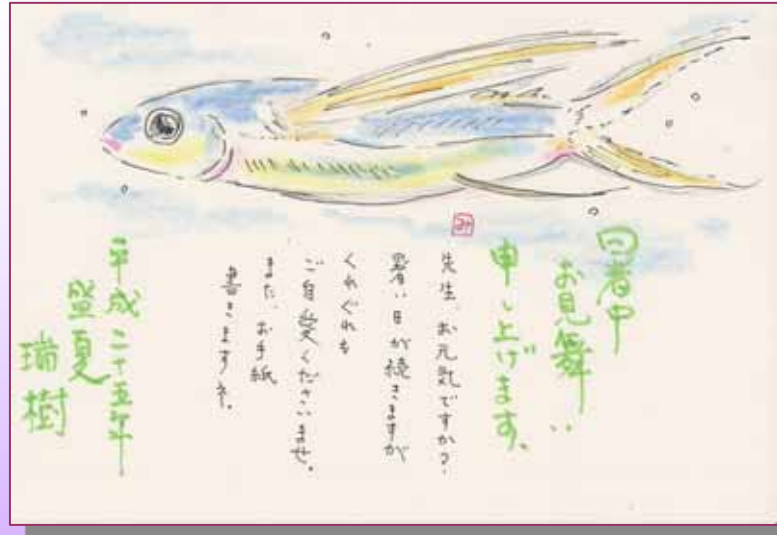 暑中
お見舞い
申し上げます。
先生、お元気ですか?
暑い日が続きますが
くれぐれも
ご自愛くださいませ。
また、お手紙
書きますネ。
平成二十五年
盛夏
瑞樹
み